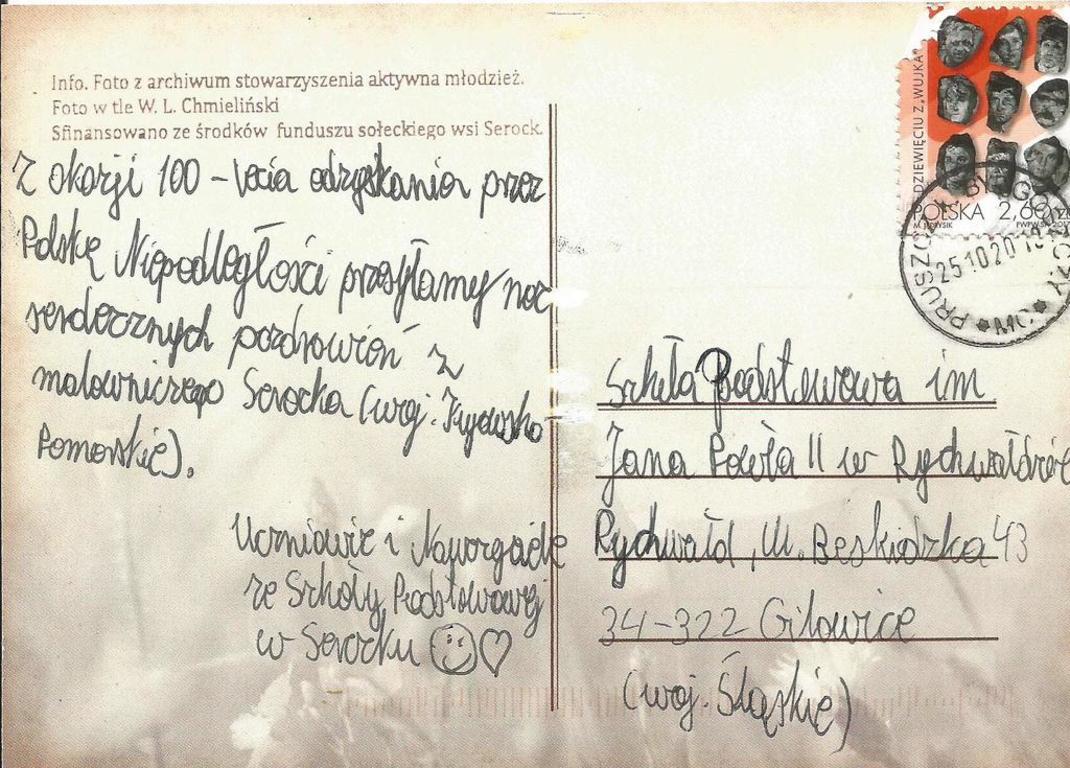 Info. Foto z archiwum stowarzyszenia aktywna młodzież.
Foto w tle W. L. Chmieliński
Sfinansowano ze środków funduszu sołeckiego wsi Serock.
Z okazji 100-lecia odzyskania przez
Polskę Niepodległości przesyłamy moc
serdecznych pozdrowień z
malowniczego Serocka (woj. Kujawsko
Pomorskie).
Uczniowie i Nauczyciele
ze Szkoły Podstawowej
w Serocku
DZIEWIĘCIU Z „WUJKA”
POLSKA 2,60 zł
PRUSZCZ K. BYDGOSZCZY
25102018
MC
Szkoła Podstawowa im
Jana Pawła II w Rychwałdzie
Rychwałd, ul. Beskidzka 43
34-322 Gilowice
(woj. Śląskie)